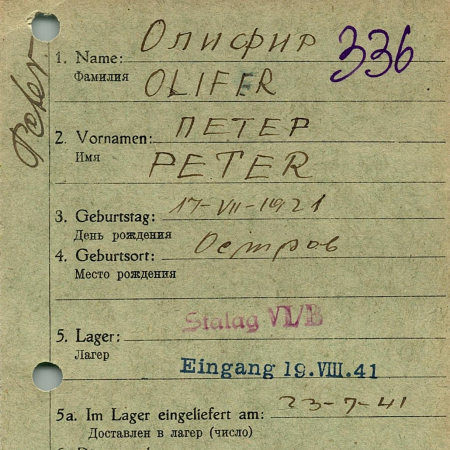 Peter
336
1. Name: Олифир
Фамилия OLIFER
2. Vornamen: ПЕТЕР
Имя PETER
3. Geburtstag: 17-VII-1921
День рождения
4. Geburtsort: Остров
Место рождения
5. Lager: Stalag VI/B
Лагер
Eingang 19.VIII.41
5a. Im Lager eingeliefert am: 23-7-41
Доставлен в лагер (число)